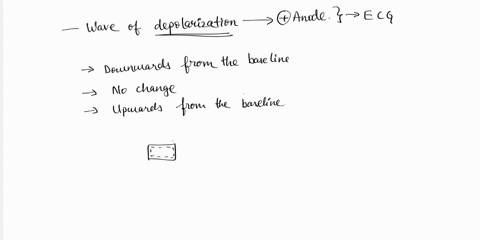 — Wave of depolarization ⟶ ⊕ Anode } → ECG
→ Downwards from the baseline
→ No change
→ Upwards from the baseline